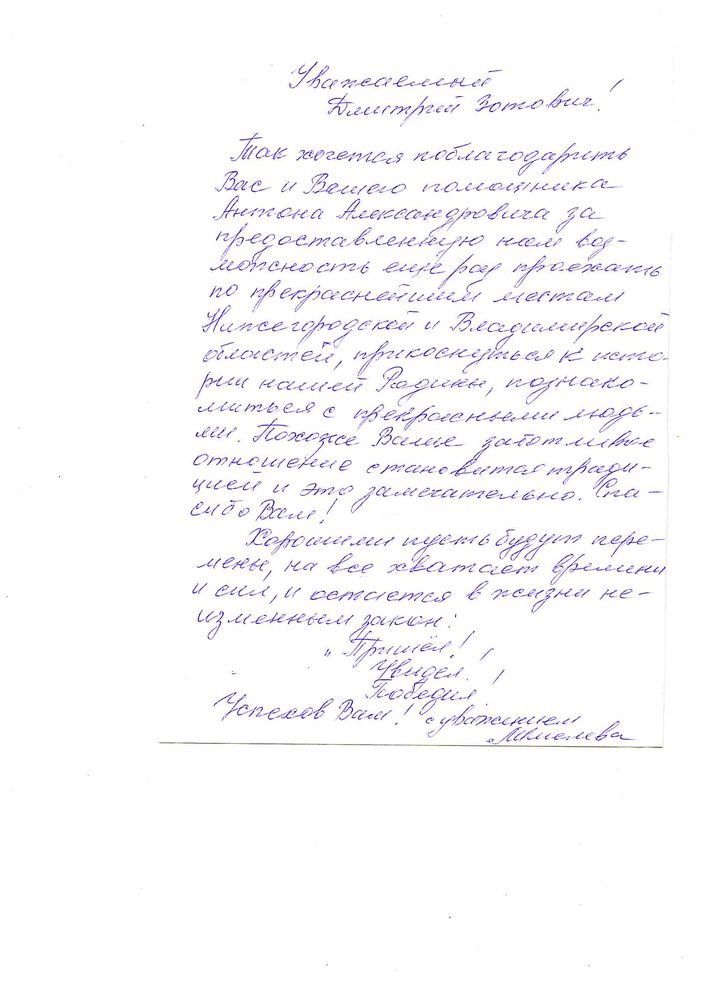 Уважаемый
Дмитрий Зотович!
Так хочется поблагодарить
Вас и Вашего помощника
Антона Александровича за
предоставленную нам воз-
можность еще раз проехать
по прекраснейшим местам
Нижегородской и Владимирской
областей, прикоснуться к исто-
рии нашей Родины, познако-
миться с прекрасными людь-
ми. Похоже Ваше заботливое
отношение становится тради-
цией и это замечательно. Спа-
сибо Вам!
Хорошими пусть будут пере-
мены, на все хватает времени
и сил, и остается в жизни не-
изменным закон:
„Пришёл!
Увидел!
Победил!
Успехов Вам! с уважением